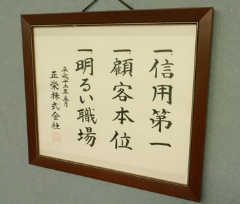 一信用第一
一顧客本位
一明るい職場
平成十五年五月
正栄株式会社